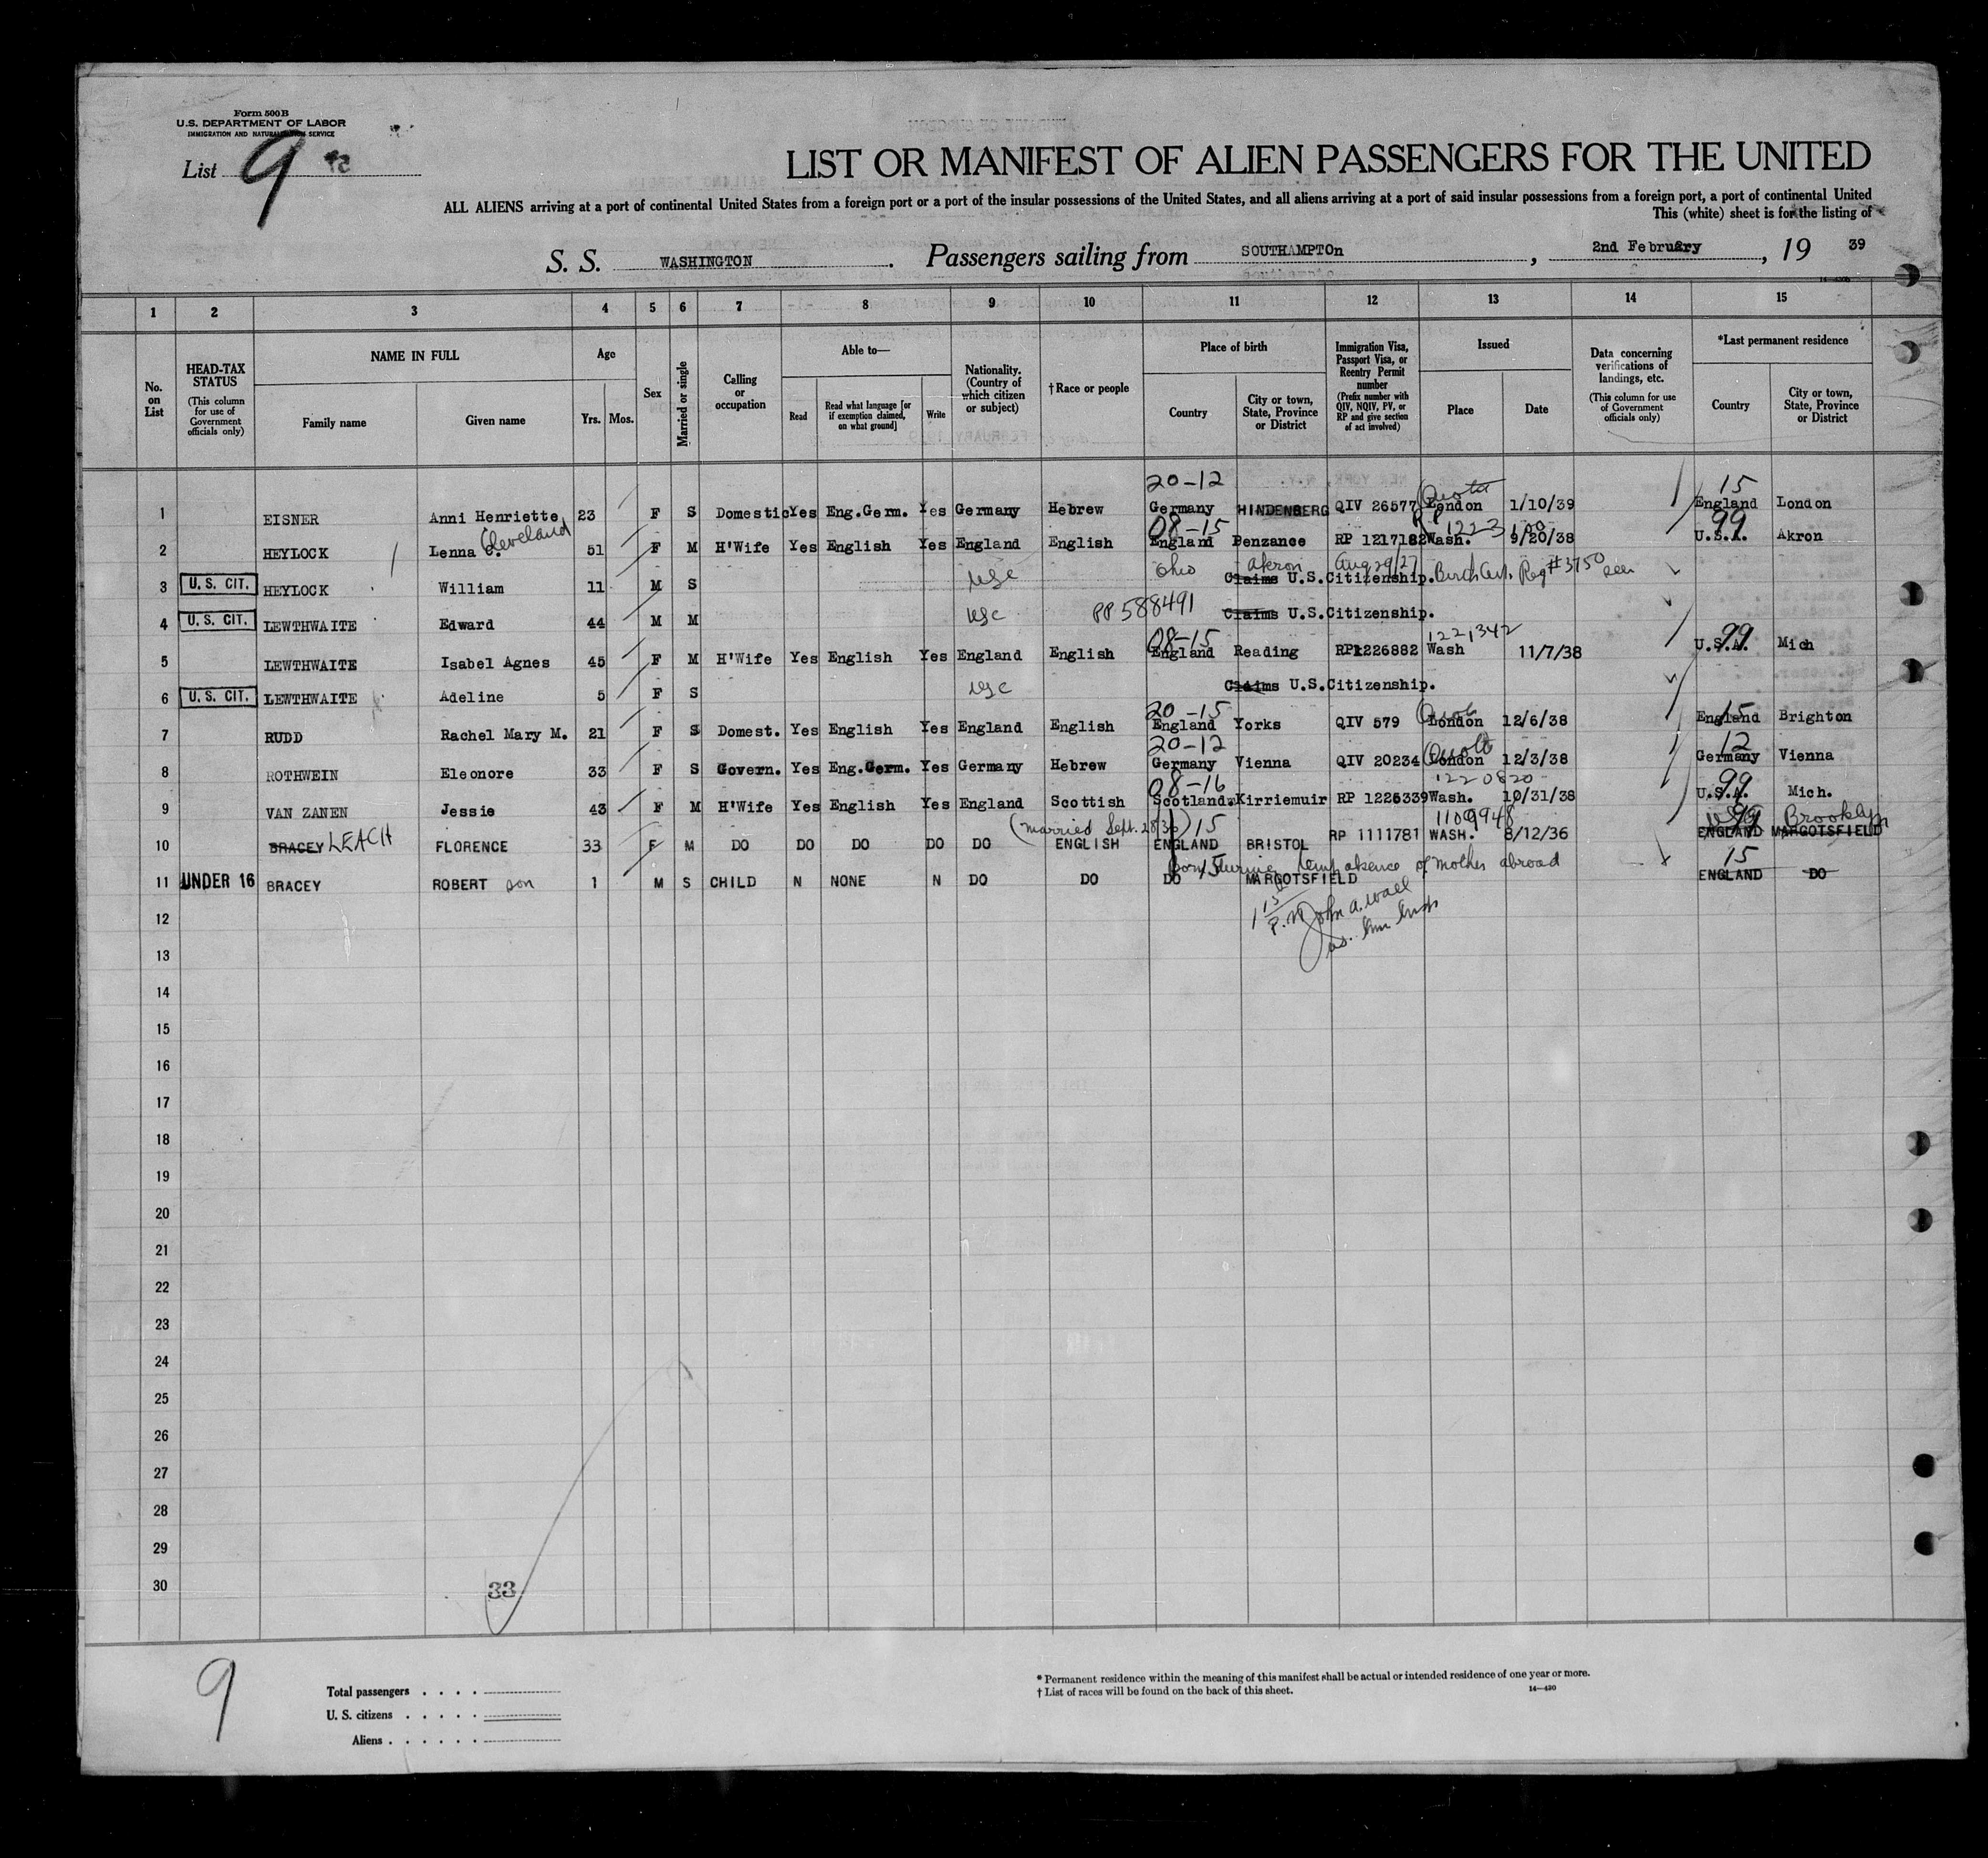 Form 500B
U.S. DEPARTMENT OF LABOR
IMMIGRATION AND NATURALIZATION SERVICE
List 9
LIST OR MANIFEST OF ALIEN PASSENGERS FOR THE UNITED
ALL ALIENS arriving at a port of continental United States from a foreign port or a port of the insular possessions of the United States, and all aliens arriving at a port of said insular possessions from a foreign port, a port of continental United
This (white) sheet is for the listing of
S. S. WASHINGTON. Passengers sailing from SOUTHAMPTOn, 2nd February, 19 39
1 2 3 4 5 6 7 8 9 10 11 12 13 14 15
No. on List
HEAD-TAX STATUS
(This column for use of Government officials only)
NAME IN FULL
Family name
Given name
Age
Yrs. Mos.
Sex
Married or single
Calling or occupation
Able to—
Read
Read what language [or if exemption claimed, on what ground]
Write
Nationality. (Country of which citizen or subject)
†Race or people
Place of birth
Country
City or town, State, Province or District
Immigration Visa, Passport Visa, or Reentry Permit number
(Prefix number with QIV, NQIV, PV, or RP and give section of act involved)
Issued
Place
Date
Data concerning verifications of landings, etc.
(This column for use of Government officials only)
*Last permanent residence
Country
City or town, State, Province or District
20-12 Quota 15
1 EISNER Anni Henriette 23 F S Domestic Yes Eng.Germ. Yes Germany Hebrew Germany HINDENBERG QIV 26577 London 1/10/39 England London
Cleveland 08-15 99
2 HEYLOCK Lenna C. 51 F M H'Wife Yes English Yes England English England Penzance RP 1217182 Wash. 9/20/38 U.S.A. Akron
Ohio Akron Aug 29/27 Birth Cert. Reg #3750 seen
3 U. S. CIT. HEYLOCK William 11 M S USC Claims U.S.Citizenship.
4 U. S. CIT. LEWTHWAITE Edward 44 M M USC PP 588491 Claims U.S.Citizenship.
08-15 1221342 99
5 LEWTHWAITE Isabel Agnes 45 F M H'Wife Yes English Yes England English England Reading RP1226882 Wash 11/7/38 U.S.A. Mich
6 U. S. CIT. LEWTHWAITE Adeline 5 F S USC Claims U.S.Citizenship.
20-15 Quota 15
7 RUDD Rachel Mary M. 21 F S Domest. Yes English Yes England English England Yorks QIV 579 London 12/6/38 England Brighton
20-12 Quota 12
8 ROTHWEIN Eleonore 33 F S Govern. Yes Eng.Germ. Yes Germany Hebrew Germany Vienna QIV 20234 London 12/3/38 Germany Vienna
08-16 1220820 99
9 VAN ZANEN Jessie 43 F M H'Wife Yes English Yes England Scottish Scotland. Kirriemuir RP 1226339 Wash. 10/31/38 U.S.A. Mich.
(married Sept. 28 36) 15 1109948 USA 99 Brooklyn
10 BRACEY LEACH FLORENCE 33 F M DO DO DO DO DO ENGLISH ENGLAND BRISTOL RP 1111781 WASH. 8/12/36 ENGLAND MARGOTSFIELD
born during temp absence of mother abroad 15
11 UNDER 16 BRACEY ROBERT son 1 M S CHILD N NONE N DO DO DO MARGOTSFIELD ENGLAND DO
John A. Wall
12
13
14
15
16
17
18
19
20
21
22
23
24
25
26
27
28
29
30
33
9
Total passengers . . . .
U. S. citizens . . . . .
Aliens . . . . . .
* Permanent residence within the meaning of this manifest shall be actual or intended residence of one year or more.
† List of races will be found on the back of this sheet.
14—420